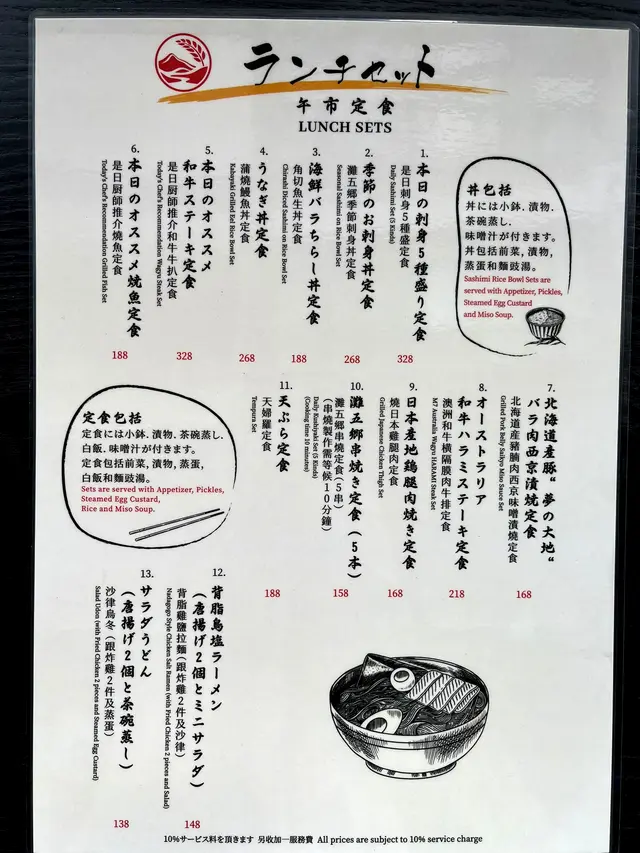 ランチセット
午市定食
LUNCH SETS
1.
本日の刺身5種盛り定食
是日刺身5種盛定食
Daily Sashimi Set (5 Kinds)
328
2.
季節のお刺身丼定食
灘五郷季節刺身丼定食
Seasonal Sashimi on Rice Bowl Set
268
3.
海鮮バラちらし丼定食
角切魚生丼定食
Chirashi Diced Sashimi on Rice Bowl Set
188
4.
うなぎ丼定食
蒲燒鰻魚丼定食
Kabayaki Grilled Eel Rice Bowl Set
268
5.
本日のオススメ
和牛ステーキ定食
是日厨師推介和牛牛扒定食
Today's Chef's Recommendation Wagyu Steak Set
328
6.
本日のオススメ焼魚定食
是日厨師推介燒魚定食
Today's Chef's Recommendation Grilled Fish Set
188
丼包括
丼には小鉢.漬物.
茶碗蒸し.
味噌汁が付きます。
丼包括前菜,漬物,
蒸蛋和麵豉湯。
Sashimi Rice Bowl Sets are
served with Appetizer, Pickles,
Steamed Egg Custard
and Miso Soup.
7.
北海道産豚“夢の大地“
バラ肉西京漬焼定食
北海道産豬腩肉西京味噌漬燒定食
Grilled Pork Belly Saikyo Miso Sauce Set
168
8.
オーストラリア
和牛ハラミステーキ定食
澳洲和牛橫隔膜肉牛排定食
M7 Australia Wagyu HARAMI Steak Set
218
9.
日本産地鶏腿肉焼き定食
燒日本雞腿肉定食
Grilled Japanese Chicken Thigh Set
168
10.
灘五郷串焼き定食(5本)
灘五郷串燒定食(5串)
(串燒製作需等候10分鐘)
Daily Kushiyaki Set (5 Kinds)
(Cooking time 10 minutes)
158
11.
天ぷら定食
天婦羅定食
Tempura Set
188
定食包括
定食には小鉢.漬物.茶碗蒸し.
白飯.味噌汁が付きます。
定食包括前菜,漬物,蒸蛋,
白飯和麵豉湯。
Sets are served with Appetizer, Pickles,
Steamed Egg Custard,
Rice and Miso Soup.
12.
背脂鳥塩ラーメン
(唐揚げ2個とミニサラダ)
背脂雞鹽拉麵(跟炸雞2件及沙律)
Nadagogo Style Chicken Salt Ramen (with Fried Chicken 2 pieces and Salad)
148
13.
サラダうどん
(唐揚げ2個と茶碗蒸し)
沙律烏冬(跟炸雞2件及蒸蛋)
Salad Udon (with Fried Chicken 2 pieces and Steamed Egg Custard)
138
10%サービス料を頂きます 另收加一服務費 All prices are subject to 10% service charge